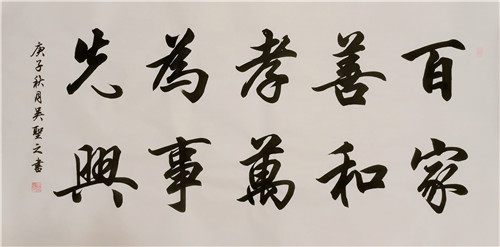 百善孝為先
家和萬事興
庚子秋月吳聖之書